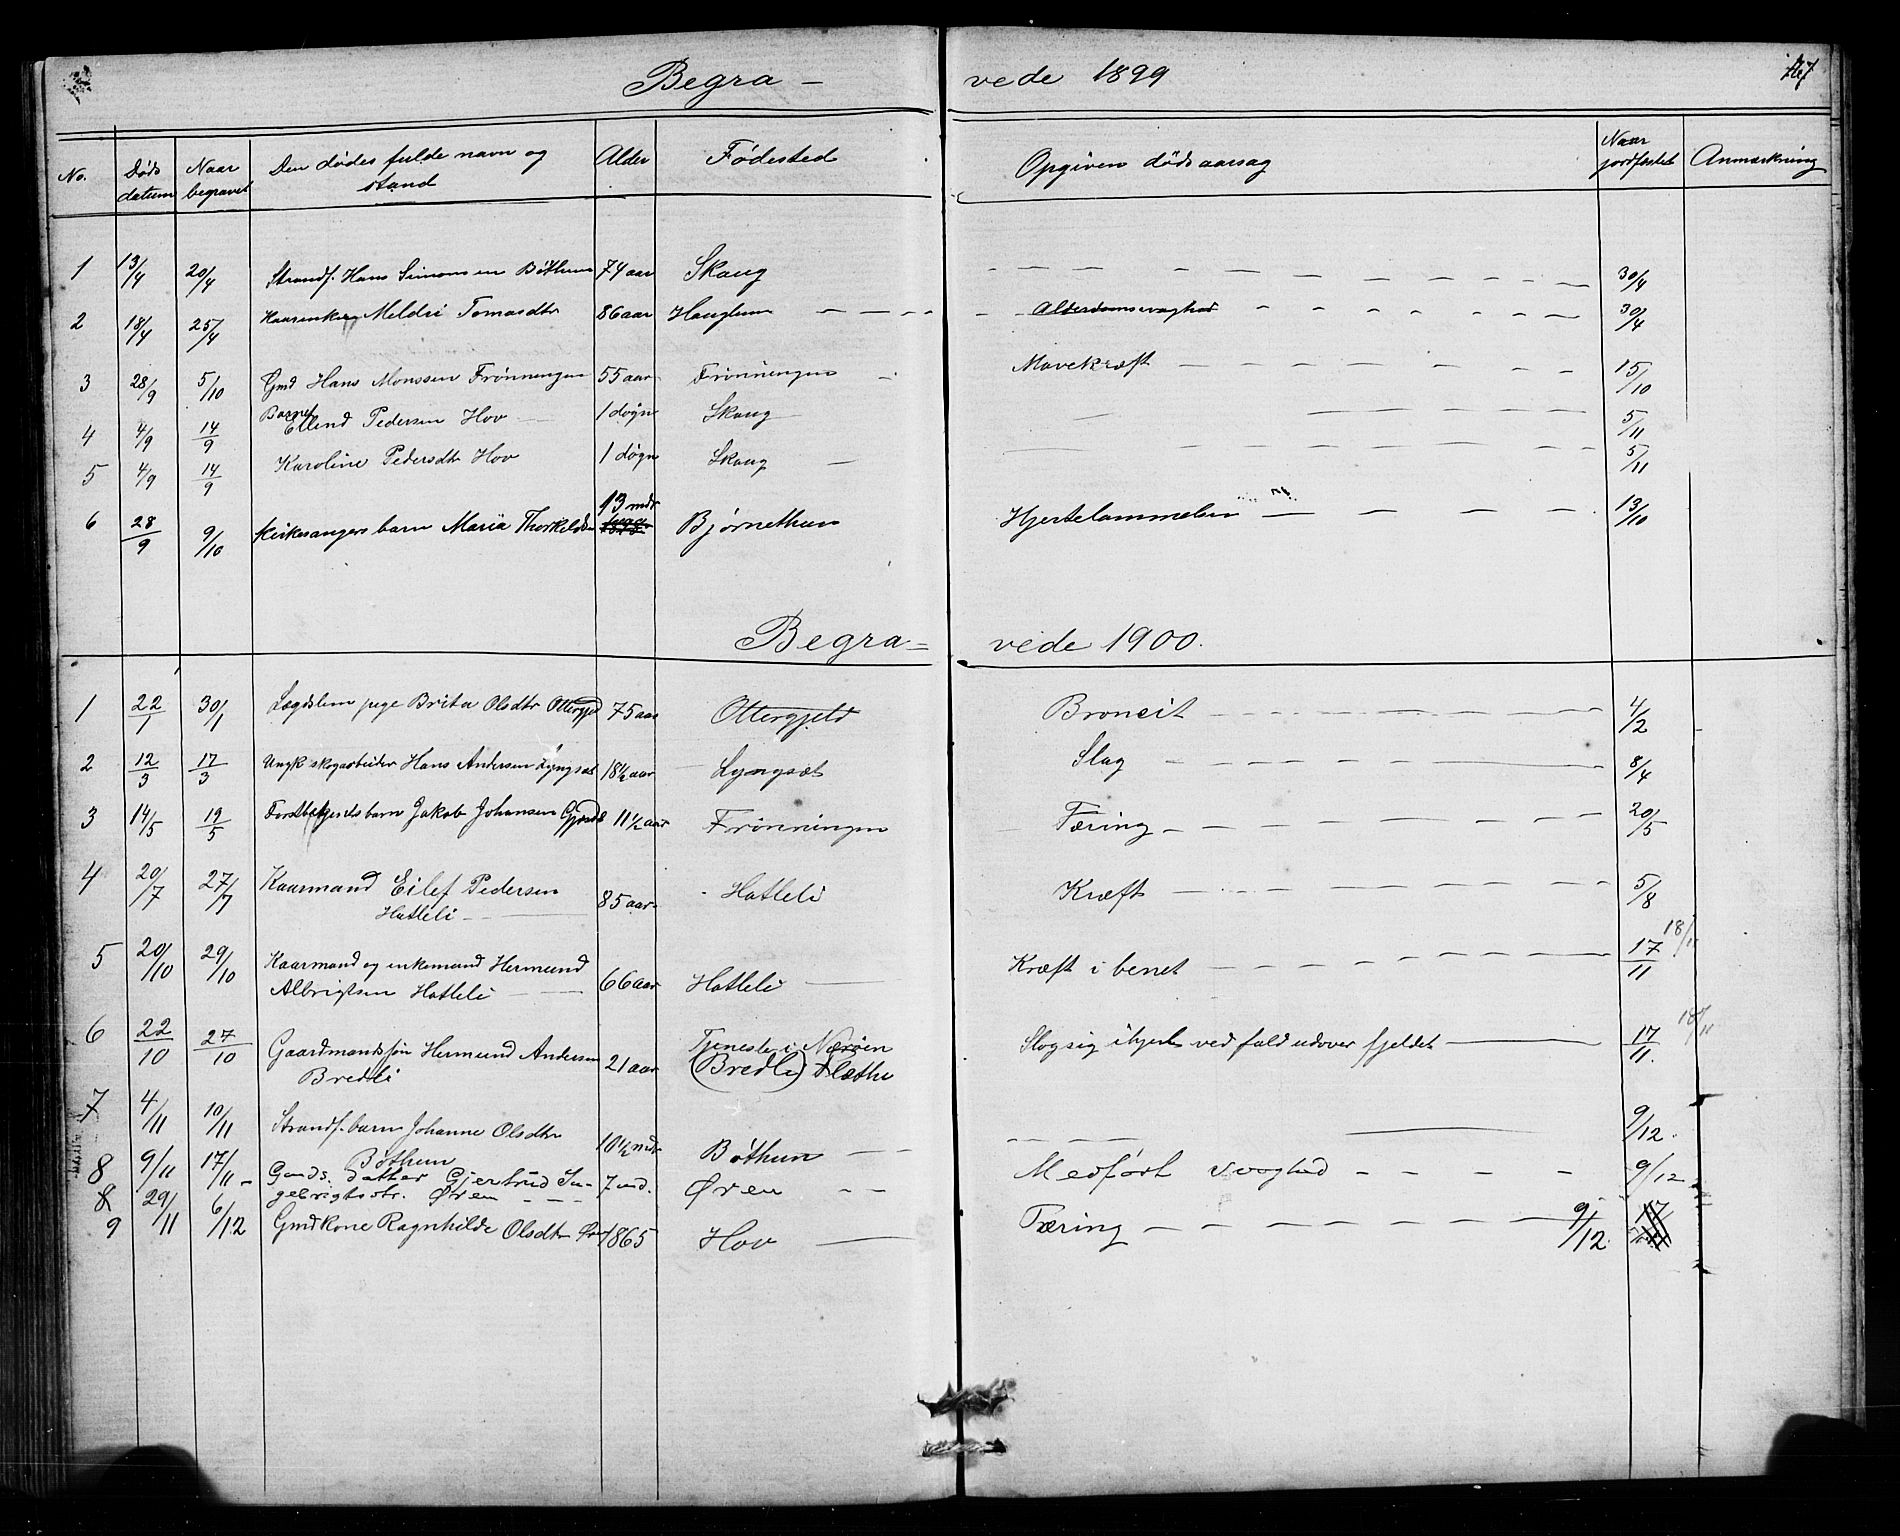 Begra- vede 1899
No. Døds datum Naar begravet Den dødes fulde navn og stand Alder Fødested Opgiven dødsaarsag Naar jordfæstet Anmærkning
1 13/4 20/4 Strandf. Hans Simonsen Bøthun 74 aar Skaug — — — 30/4
2 18/4 25/4 Meldri Tomasdtr 86 aar Hauglum — — Alderdomssvaghed — — 30/4
3 28/9 5/10 Gmd Hans Monssen Frønningen 55 aar Frønningen — Mavekræft — — 15/10
4 4/9 14/9 Barnet Ellend Pedersen Hov 1 døgn Skaug — — 5/11
5 4/9 14/9 Karoline Pedersdtr Hov 1 døgn Skaug — — 5/11
6 28/9 9/10 Kirkesangers barn Maria Thorkildsen 13 mdr Bjørnethun Hjertelammelse — — 13/10
Begra- vede 1900.
1 22/1 30/1 Lægdslem pige Brita Olsdtr Ottergjeld 75 aar Ottergjeld Broncit — — 4/2
2 12/3 17/3 Ungk skogarbeider Hans Andersen Lyngsæt 18½ aar Lyngsæt Slag — — 8/4
3 14/5 19/5 barn Jakob Johansen 11½ aar Frønningen Tæring — — 20/5
4 20/7 27/7 Kaarmand Eilef Pedersen
Hatleli — 85 aar Hatleli Kræft — — 5/8
5 20/10 29/10 Kaarmand og enkemand Hermund
Albrigtsen Hatleli — 66 aar Hatleli — Kræft i benet — — 17/11 18/11
6 22/10 27/10 Gaardmandssøn Hermund Andersen
Bredli 21 aar Tjeneste i Nærøen
(Bredli) Slogsig ihjel ved fald udover fjeldet — 17/11. 18/11
7 4/11 10/11 Strandf. barn Johanne Olsdtr
Bøthun 10½ mdr Bøthun — — — — 9/12.
8 9/11 17/11 Gmds. datter Gjertrud In-
gebrigtsdtr. Øren — 7 md. Øren — — Medført svaghed — — 9/12
9 29/11 6/12 Gmdkone Ragnhilde Olsdtr 1865 Hov — Tæring — — 9/12